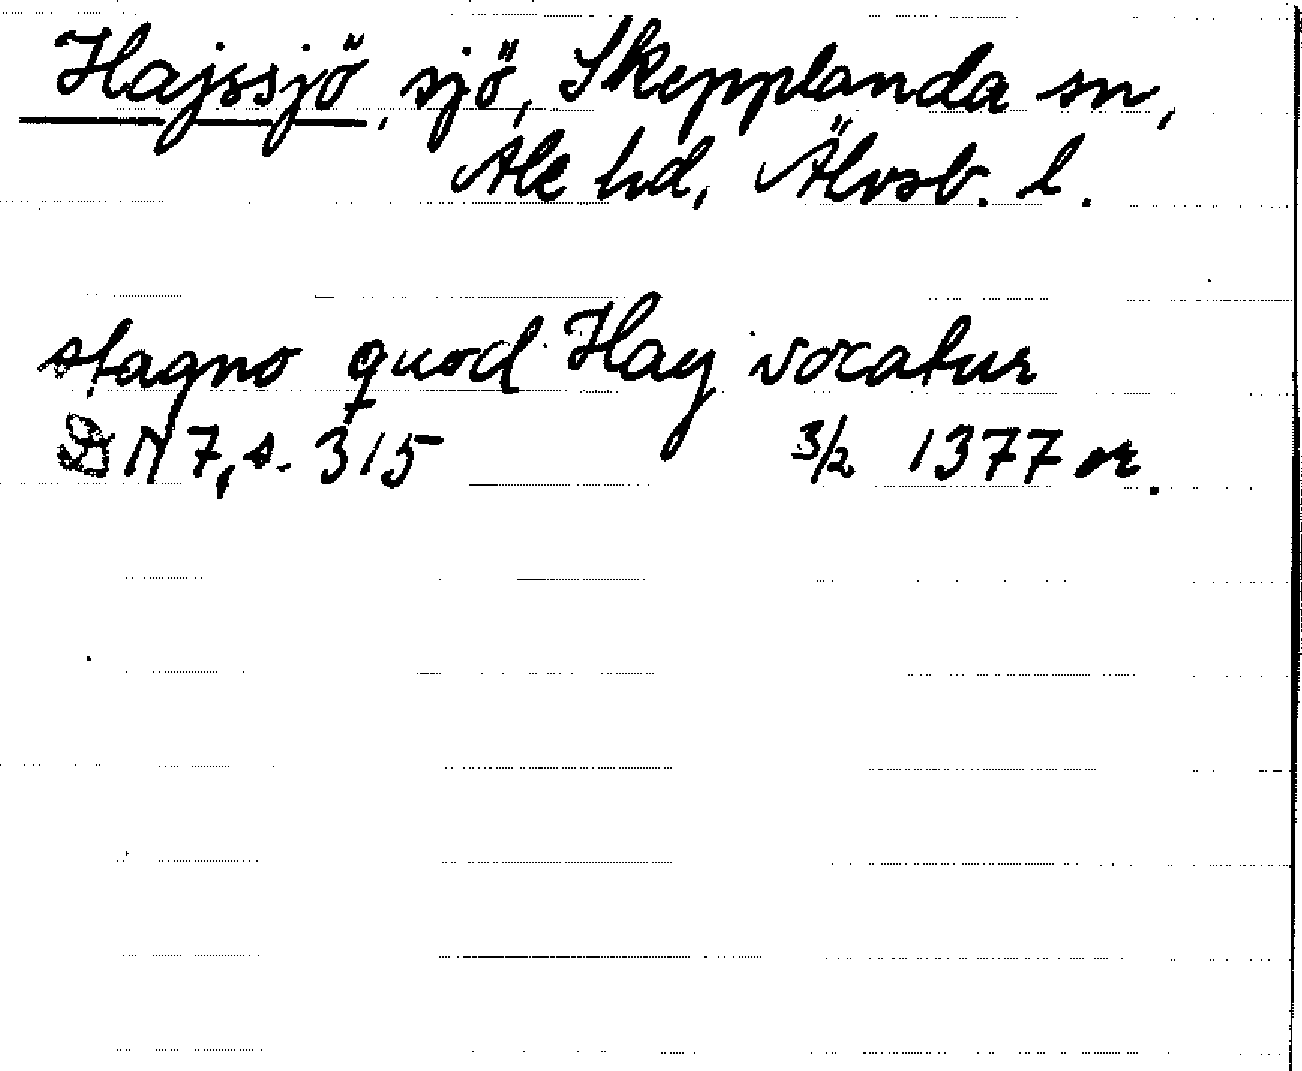 Hajssjö, sjö, Skepplanda sn,
Ale hd, Älvsb. l.
stagno quod Hay vocatur
DN 7, s. 315 3/2 1377 or.